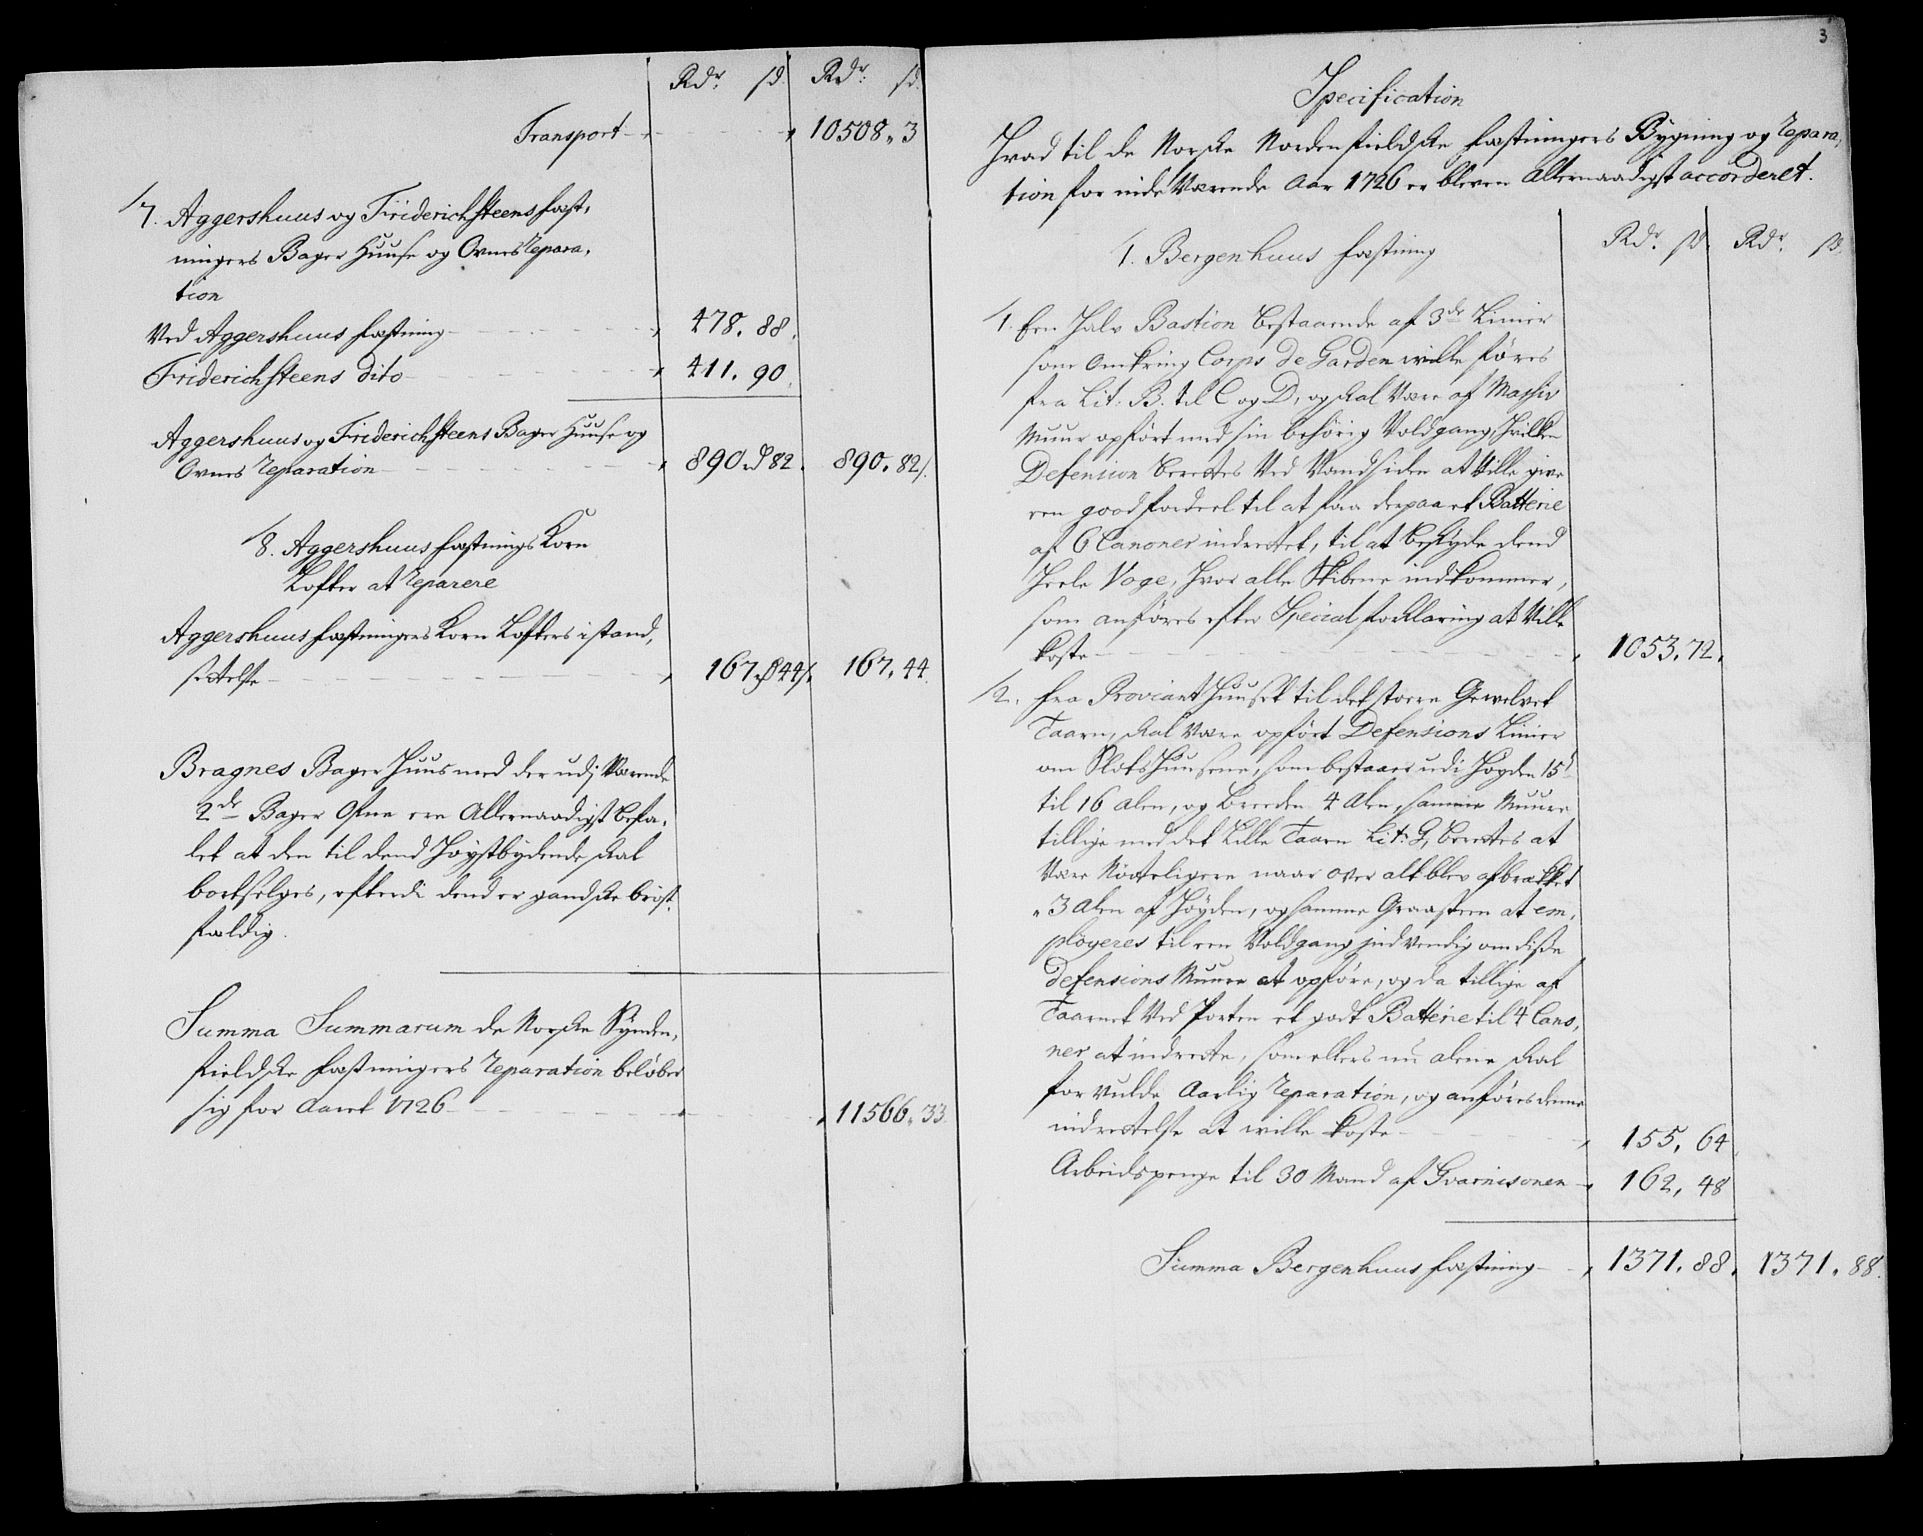 Rdr. sk. Rdr: sk.
Transport 10508. 3
7. Aggershuus og Friderichsteens Fæst,
ningers Bager Huuse og Ovnes Repara,
tion
Ved Aggershuus Fæstning 478. 88.
Friderichsteens dito 411. 90.
Aggershuus og Friderichsteens Bager Huuse og
Ovnes Reparation 890. 82. 890. 82.
8. Aggershuus Fæstnings Korn
Lofter at Reparere
Aggershuus Fæstningers Korn Lofters i stand,
sættelse 167. 44. 167. 44.
Bragnes Bager Huus med der udj Værende
2de Bager Ofne ere Allernaadigst befa,
let at den til dend Høystbydende skal
bortselges, efterdi dend er gandske brøst,
fældig.
Summa Summarum de Norske Synden,
fieldske Fæstningers Reparation beløber
sig for Aaret 1726 11566. 33.
3
Specification
Hvad til de Norske Nordenfieldske Fæstningers Bygning og Repara,
tion for inde Værende Aar 1726 er bleven Allernaadigst accorderet.
1. Bergenhuus Fæstning Rdr. sk. Rdr. sk.
1. Een Halv Bastion bestaaende af 3de Linier
som omkring Corps de Garden wille føres
fra Lit. B. til C og D, og skal Være af Massiv
Muur opført med sin behørig Voldgang, Hvilken
Defension berettes Ved Vandsiden at Ville give
een good fordeel til at faa derpaa et Batterie
af 6 Canoner indrettet, til at beskyde dend
Heele Vaage, Hvor alle Skibene indkommer,
som anføres efter Special forklaring at Ville
koste 1053. 72.
2. Fra Proviant Huuset til det store Gewelvet
Taarn, skal Være opført Defensions Linier
om Slots Huusene, som bestaaer udi Høyden 15
til 16 Alen, og breeden 4 Alen, samme Muure
tillige med det Lille Taarn Lit: G, berettes at
Være Nøtteligere naar over alt blev afbrækket
3 Alen af Høyden, og samme Graasteen at em,
ployeres til een Voldgang indvendig om disse
Defensions Muure at opføre, og da tillige af
Taarnet Ved Porten et godt Batterie til 4 Cano,
ner at indrette, som ellers nu alene skal
for vulde Aarlig Reparation, og anføres denne
indrettelse at wille koste 155. 64
Arbeidspenge til 30 Mand af Gvarnisonen 162. 48
Summa Bergenhuus Fæstning 1371. 88. 1371. 88.